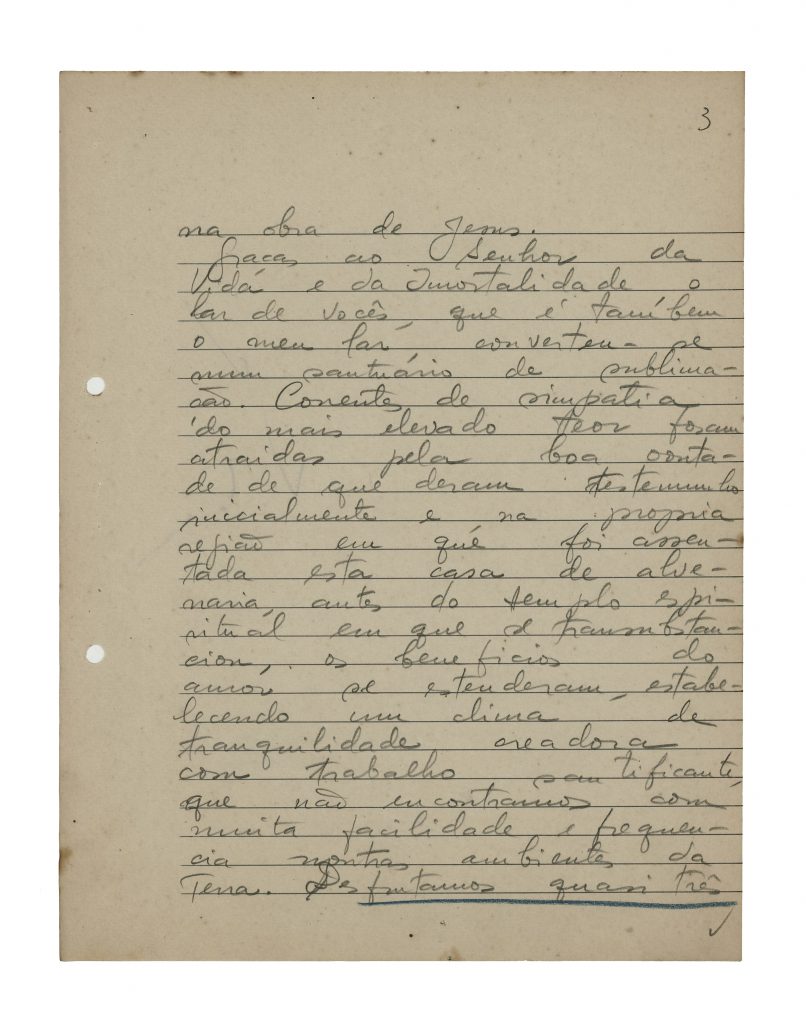 3
na obra de Jesus.
Graças ao Senhor da
Vida e da Imortalidade o
lar de vocês, que é também
o meu lar, converteu-se
num santuário de sublima-
ção. Correntes de simpatia
do mais elevado teor foram
atraidas pela boa vonta-
de de que deram testemunho
inicialmente e na propria
região em que foi assen-
tada esta casa de alve-
naria, antes do templo espi-
ritual em que se transubstan-
ciou, os beneficios do
amor se estenderam, estabe-
lecendo um clima de
tranquilidade creadora
com trabalho santificante,
que não encontramos com
muita facilidade e frequen-
cia noutros ambientes da
Terra. Desfrutamos quasi três